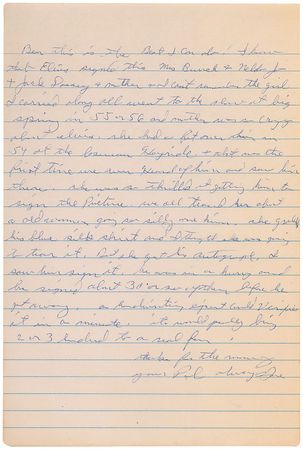 Ben this is the Best I can do! I know
that Elvis signed this Mrs Bunch &
+ Jack + mother and can't remember the girl
I carried along all went to the show at big
spring in 55 or 56 and mother was so crazy
about elvis. she had a fit over him in
54 at the + that was the
first time we ever heard of him and saw him
there. she was so thrilled at getting him to
sign the Picture. we all teased her about
a old woman going so silly over him. she grabed
his blue silk shirt and I thought she was going
to tear it. But she got his autograph, I
saw him sign it. he was in a hurry and
he signed about 30 or so of them before he
got away. a handwriting expert could verify
it in a minute. it would bring
2 or 3 hundred to a real fan.
thanks for the money
your Pal always